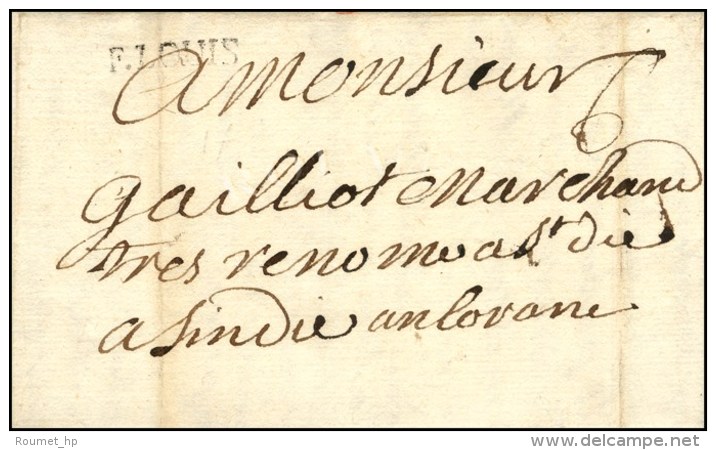 F.LOUIS
A monsieur
6
gailliot Marchand
tres renome a St die
a sindie an lorane
Roumet_hp
delcampe.net